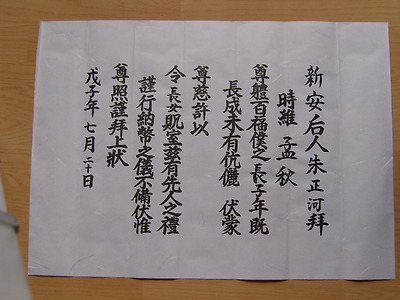 新安后人朱正河拜
時維孟秋
尊體百福僕之長子年既
長成未有伉儷 伏蒙
尊慈許以
令長女貺室玆有先人之禮
謹行納幣之儀不備伏惟
尊照謹拜上狀
戊子年 七月 二十日